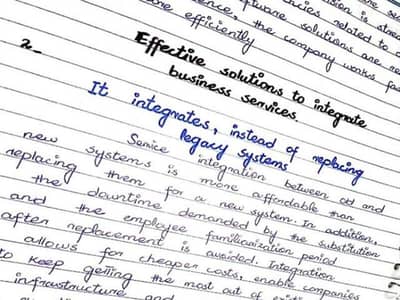 ware solutions are re
ence, the company works fas
re efficiently
2_
Effective solutions to integrate
business services.
It integrates, instead of replacing
legacy systems
Service integration between old and
new systems is more affordable than
replacing them for a new system. In addition,
the downtime demanded by the substitution
and the employee familiarization period
after replacement is avoided. Integration
allows for cheaper costs, enable companies
to keep getting the most out of
infrastructure and